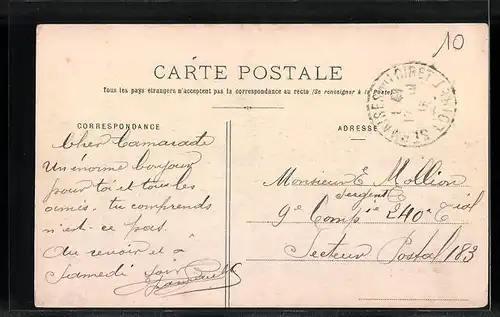 10
CARTE POSTALE
Tous les pays étrangers n'acceptent pas la correspondance au recto (Se renseigner à la Poste)
CORRESPONDANCE
ADRESSE
Cher Camarade
Un énorme bonjour
pour toi et tous les
amis. tu comprends
n'est-ce pas.
Au revoir et à
Samedi soir
Monsieur E Mollion
Sergent
9e Compie 240e Tial
Secteur Postal 183
LOIRET